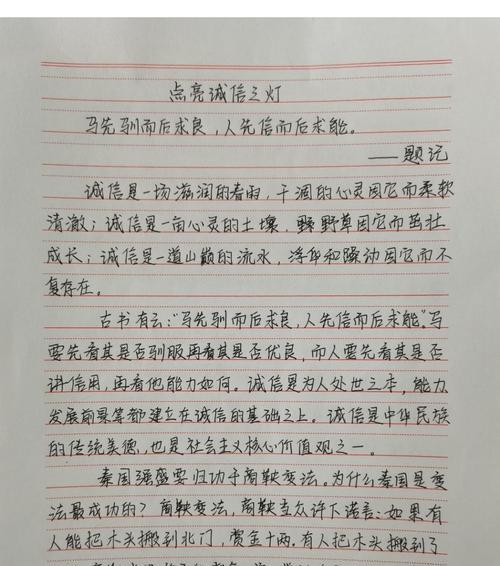 点亮诚信之灯
马先驯而后求良，人先信而后求能。
——题记
诚信是一场滋润的春雨，干涸的心灵因它而柔软
清澈；诚信是一亩心灵的土壤，野草因它而茁壮
成长；诚信是一道山巅的流水，浮华和躁动因它而不
复存在。
古书有云："马先驯而后求良，人先信而后求能"。马
要先看其是否驯服再看其是否优良，而人要先看其是否
讲信用，再看他能力如何。诚信是为人处世之本，能力、
发展前景等都建立在诚信的基础之上。诚信是中华民族
的传统美德，也是社会主义核心价值观之一。
秦国强盛要归功于商鞅变法。为什么秦国是变
法最成功的？商鞅变法，商鞅当众许下诺言：如果有
人能把木头搬到北门，赏金十两，有人把木头搬到了